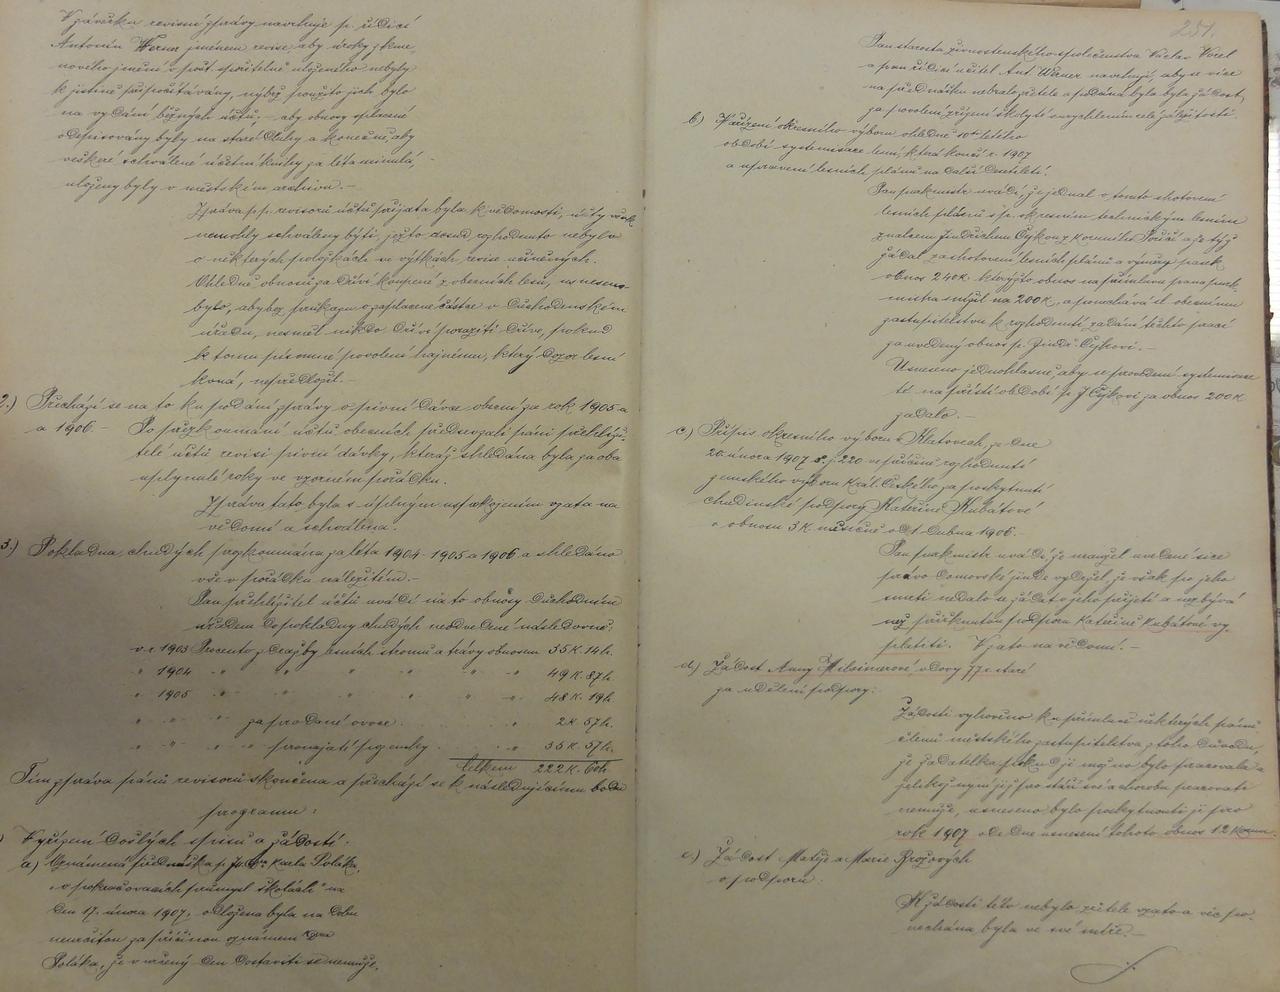 V závěrku revisní zprávy navrhuje p. řídící
Antonín Werner jménem revise, aby úroky z kme-
nového jmění v pošt. spořitelně uloženého nebyly
k jistině připočítávány, nýbrž použito jich bylo
na vydání běžných účtů, aby obnosy splacené
odepisovány byly na staré dluhy a konečně, aby
veškeré schválené účetní knihy za léta minulá,
uloženy byly v městském archivu.-
Zpráva p.p. revisorů účtů přijata byla k vědomosti, účty však
nemohly schváleny býti, ježto dosud rozhodnuto nebylo
o některých položkách ve výtkách revise učiněných.
Ohledně obnosů za dříví koupené z obecních lesů, usneseno
bylo, aby bez průkazu o zaplacené částce v důchodenském
úřadu, nesměl nikdo dříví poraziti dříve, pokud
k tomu písemné povolení hajnému, který dozor lesní
koná, nepředložil.-
2.) Přechází se na to ku podání zprávy o pivní dávce obecní za rok 1905 a
a 1906.- Po přezkoumání účtů obecních předsevzali páni přehlíži-
telé účtů revisi pivní dávky, kteráž shledána byla za oba
uplynulé roky ve vzorném pořádku.
Zpráva tato byla s úplným uspokojením vzata na
vědomí a schválena.
3.) Pokladna chudých přezkoumána za léta 1904-1905 a 1906 a shledáno
vše v pořádku náležitém.-
Pan přehlížitel účtů uvádí na to obnosy důchodním
úřadem do pokladny chudých neodvedené následovně:
v r. 1903 Procento z dražby lesních stromů a trávy obnosem 55 K. 14 h.
" 1904 " " " " " " 49 K. 87 h.
" 1905 " " " " " 48 K. 19 h.
" " " " za prodané ovoce " 2 K. 57 h.
" " " " pronajaté pozemky " 55 K. 57 h.
Celkem 222 K. 60 h.
Tím zpráva pánů revisorů skončena a přechází se k následujícímu bodu
programu:
Vyřízení došlých spisů a žádostí:
a) Oznámená přednáška p. JUDra Karla Poláka,
"o pokračovacích průmysl. školách" na
den 17. února 1907, odložena byla na dobu
neurčitou za příčinou oznámení dra
Poláka, že v určený den dostaviti se nemůže.
251.
Pan starosta živnostenského společenstva Václav Vorel
a pan řídící učitel Ant. Werner navrhují, aby se více
na přednášku nebralo zřetele a podána byla žádost,
za povolení zřízení školy té s urychlením celé záležitosti.
b) Nařízení okresního výboru ohledně 10ti letého
období systemisace lesní, která končí r. 1907
a upravení lesních plánů na další desítiletí.
Pan purkmistr uvádí, že jednal o tomto zhotovení
lesních plánů s p. okresním technickým lesním
znalcem Jindřichem Čížkou z Horního Poříčí a že týž
žádal za zhotovení lesních plánů a výměry pasek
obnos 240 K. kterýžto obnos na přímluvu pana purk-
mistra snížil na 200 K, a ponechává sl. obecnímu
zastupitelstvu k rozhodnutí zadání těchto prací
za uvedený obnos p. Jindř. Čížkovi.-
Usneseno jednohlasně, aby se provedení systemisace
té na příští období p. J. Čížkovi za obnos 200 K
zadalo.-
c) Přípis okresního výboru v Klatovech, ze dne
26. února 1907 č. j. 220 ve příčině rozhodnutí
zemského výboru král. Českého za poskytnutí
chudinské podpory Kateřině Kubátové
v obnosu 3 K měsíčně od 1. dubna 1906.-
Pan purkmistr uvádí, že manžel uvedené sice
právo domovské jinde vydržel, že však po jeho
smrti nedalo se žádat o jeho přijetí a nezbývá
než přiřknutou podporu Kateřině Kubátové vy-
platiti. Vzato na vědomí.-
d) Žádost Anny vdovy 77 r. staré
za udělení podpory:
Žádosti vyhověno ku přímluvě některých pánů
členů městského zastupitelstva z toho důvodu,
že žadatelka pokud jí možno bylo pracovala a
jelikož nyní již pro stáří své a chorobu pracovati
nemůže, usneseno bylo poskytnouti jí pro
rok 1907 ode dne usnesení tohoto obnos 12 korun.
e) Žádost Matěje a Marie Brožových
o podporu.
K žádosti této nebylo zřetele vzato a věc po-
nechána byla ve své míře.-